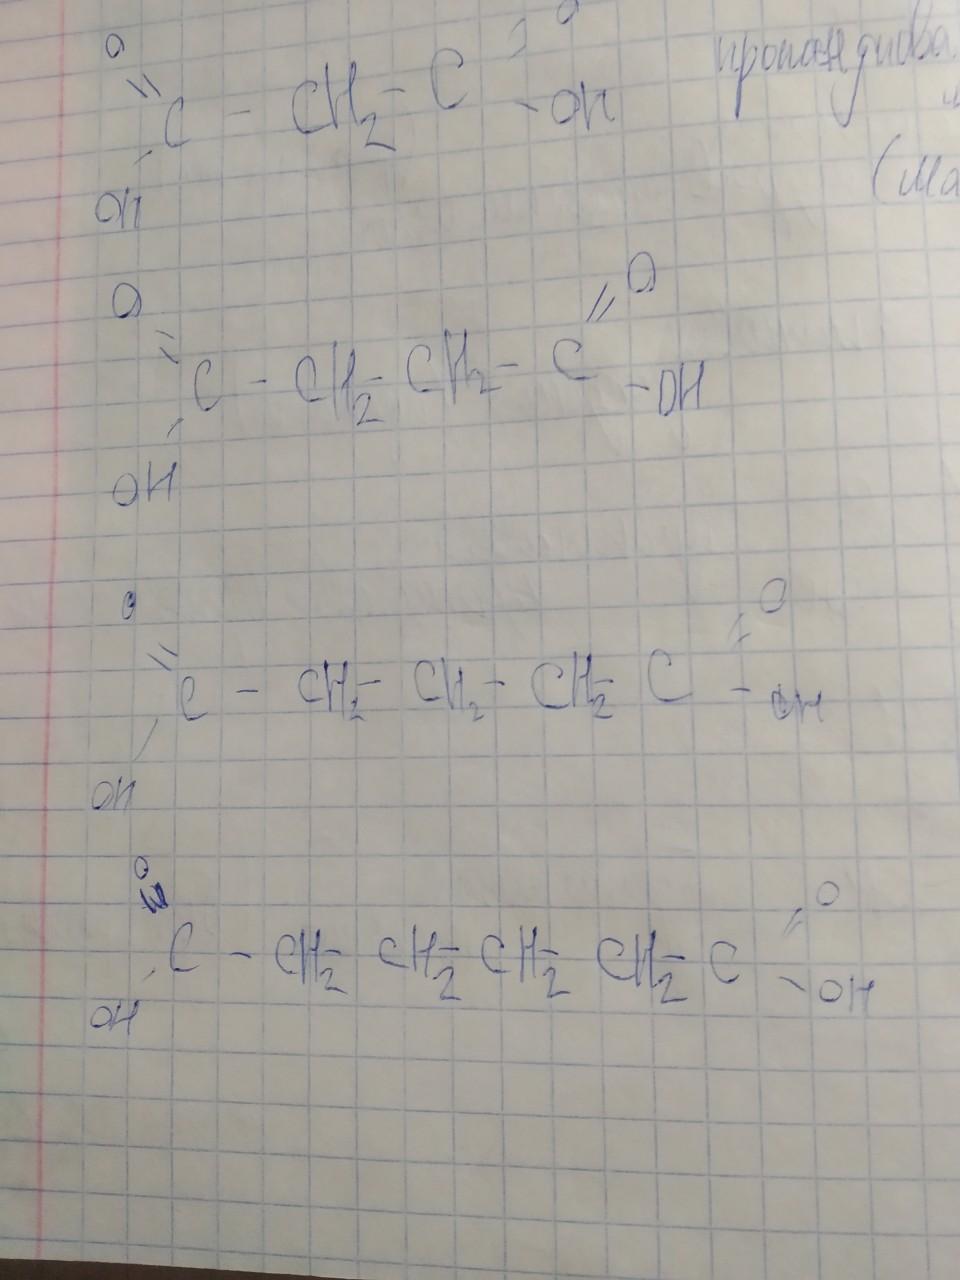 O O
C - CH2 - C - OH пропандиова
OH (Ма
O O
C - CH2 - CH2 - C - OH
OH
O O
C - CH2 - CH2 - CH2 - C - OH
OH
O O
C - CH2 - CH2 - CH2 - CH2 - C - OH
OH